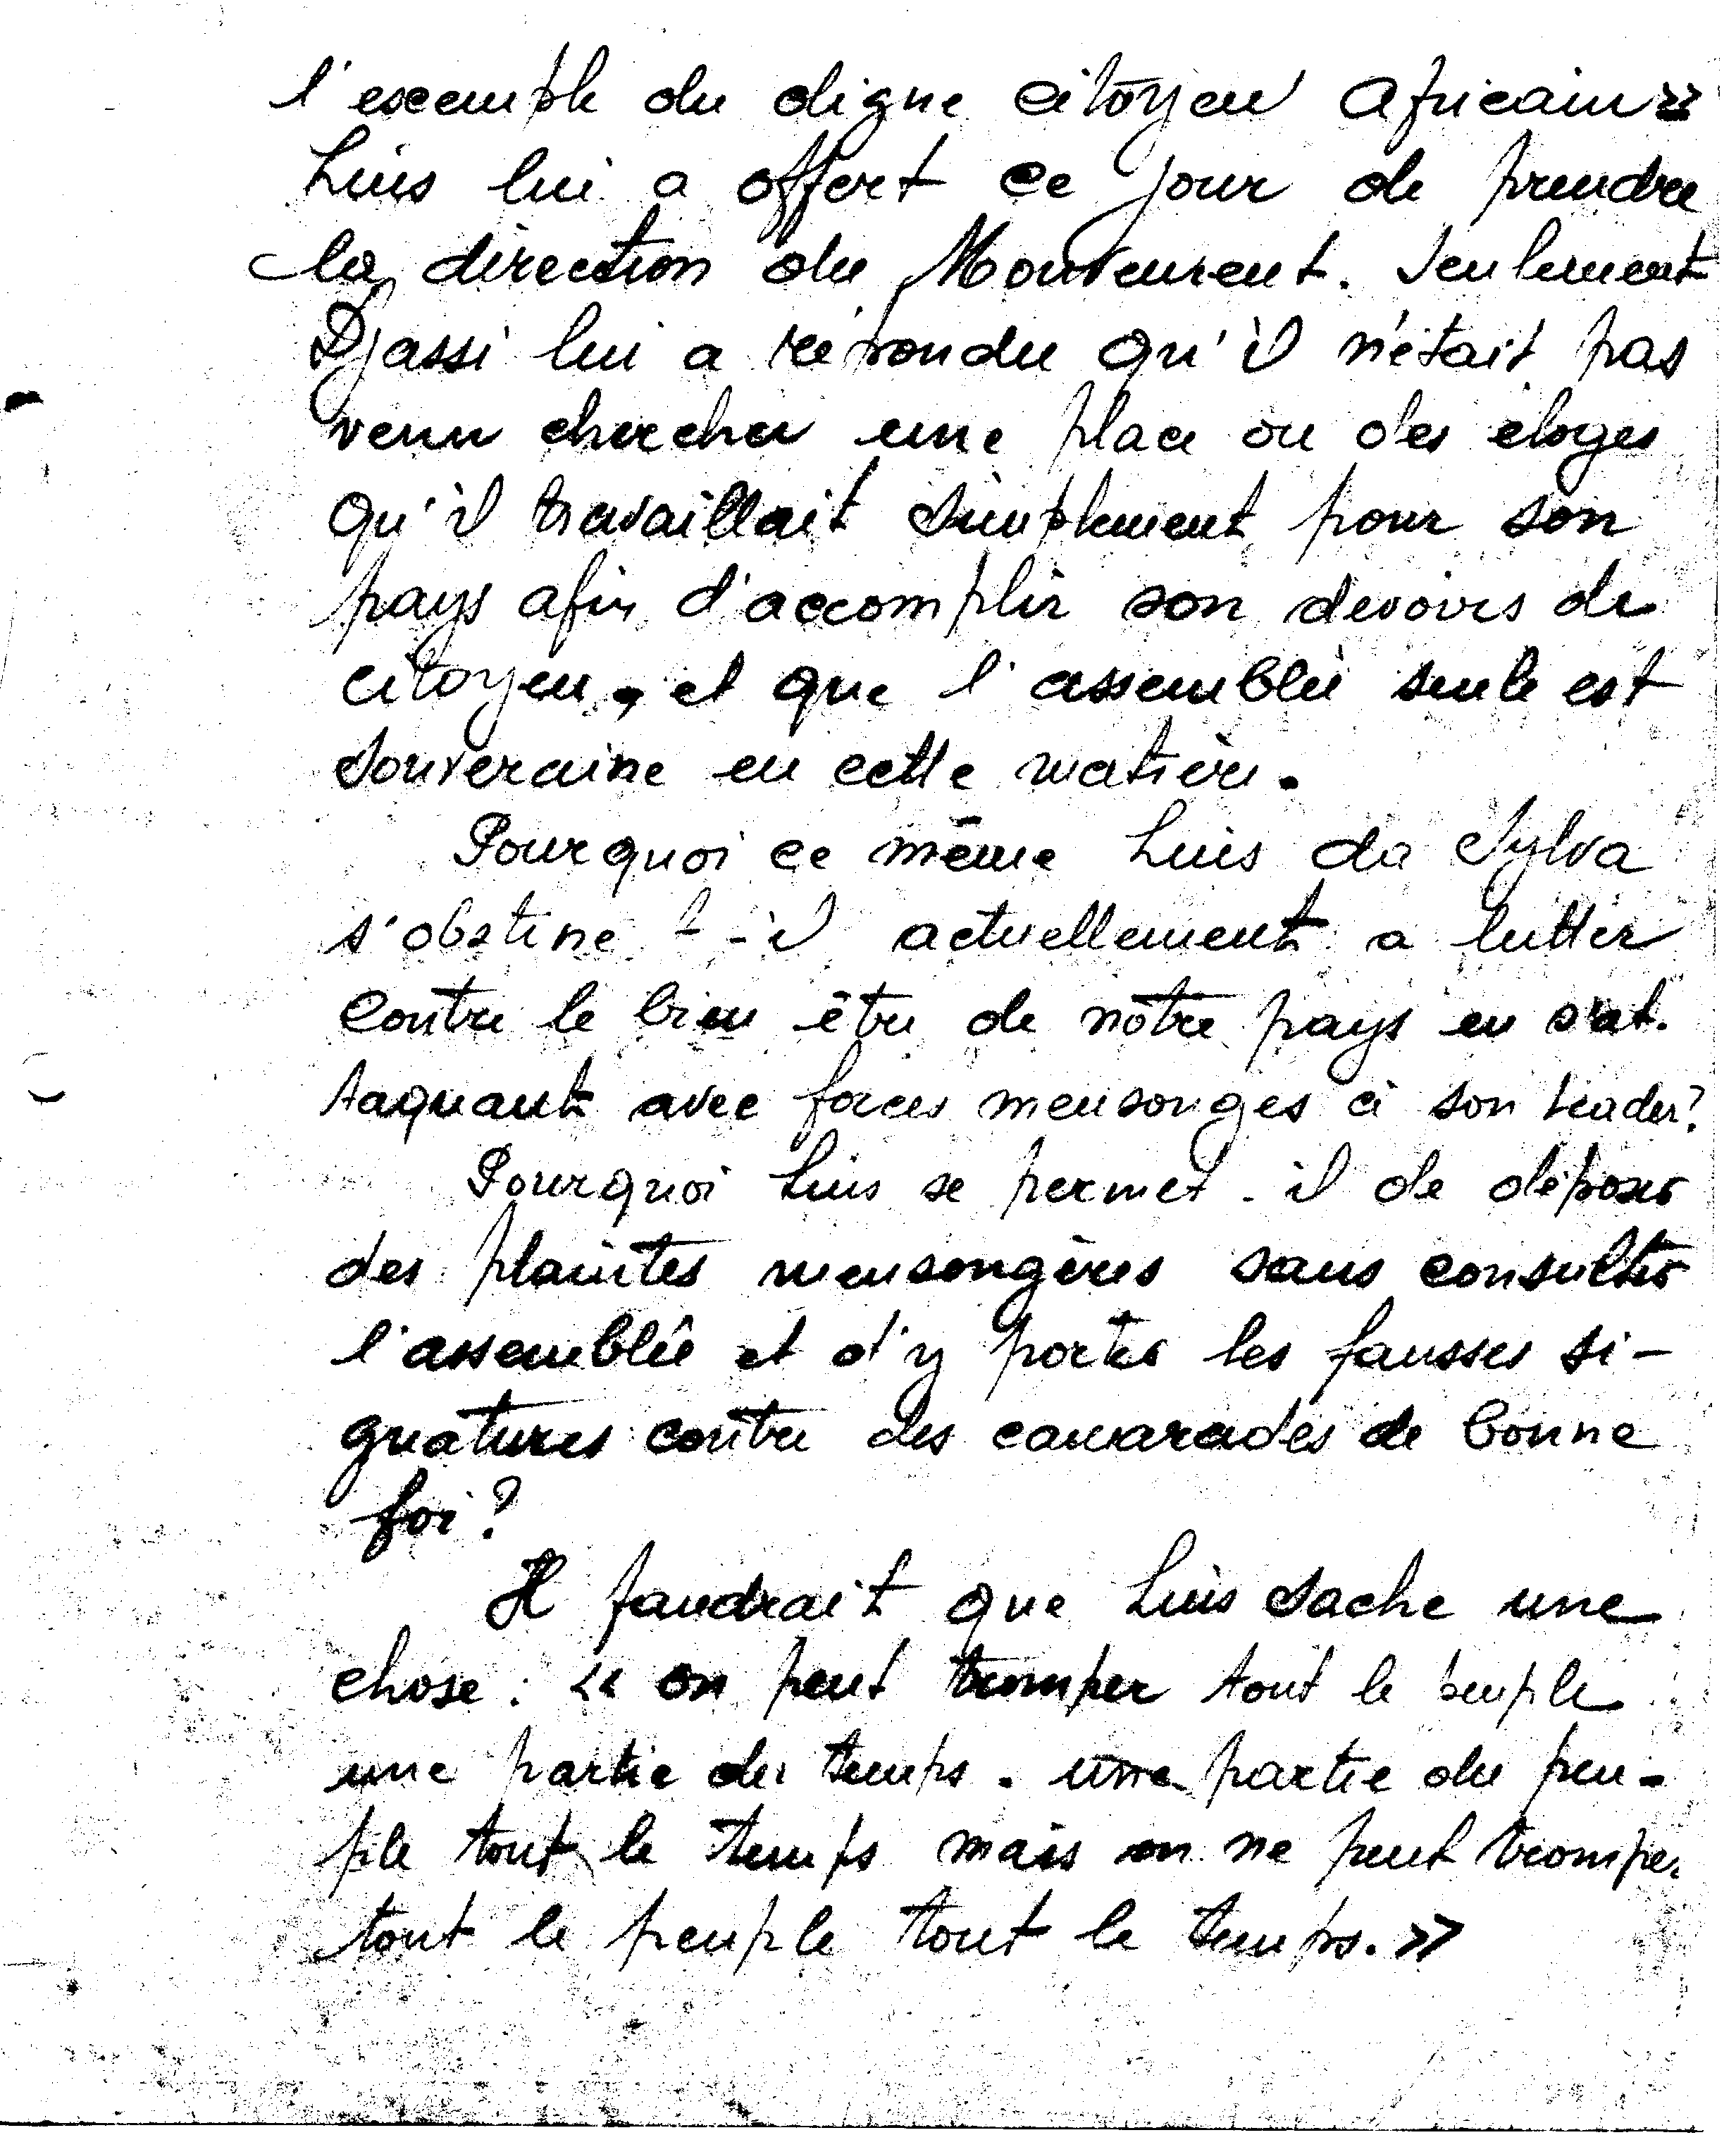 l'exemple du digne citoyen Africain »
Luis lui a offert ce jour de prendre
la direction du Mouvement. Seulement
Djassi lui a répondu qu'il n'était pas
venu chercher une place ou des éloges
qu'il travaillait simplement pour son
pays afin d'accomplir son devoirs de
citoyen, et que l'assemblée seule est
souveraine en cette matière.
Pourquoi ce même Luis da Sylva
s'obstine t-il actuellement a lutter
contre le bien être de nôtre pays en s'at-
taquant avec forces mensonges à son leader?
Pourquoi Luis se permet-il de déposer
des plaintes mensongères sans consulter
l'assemblée et d'y porter les fausses si-
gnatures contre des camarades de bonne
foi?
Il faudrait que Luis sache une
chose : « on peut tromper tout le peuple
une partie du temps. une partie du peu-
ple tout le temps mais on ne peut tromper
tout le peuple tout le temps. »